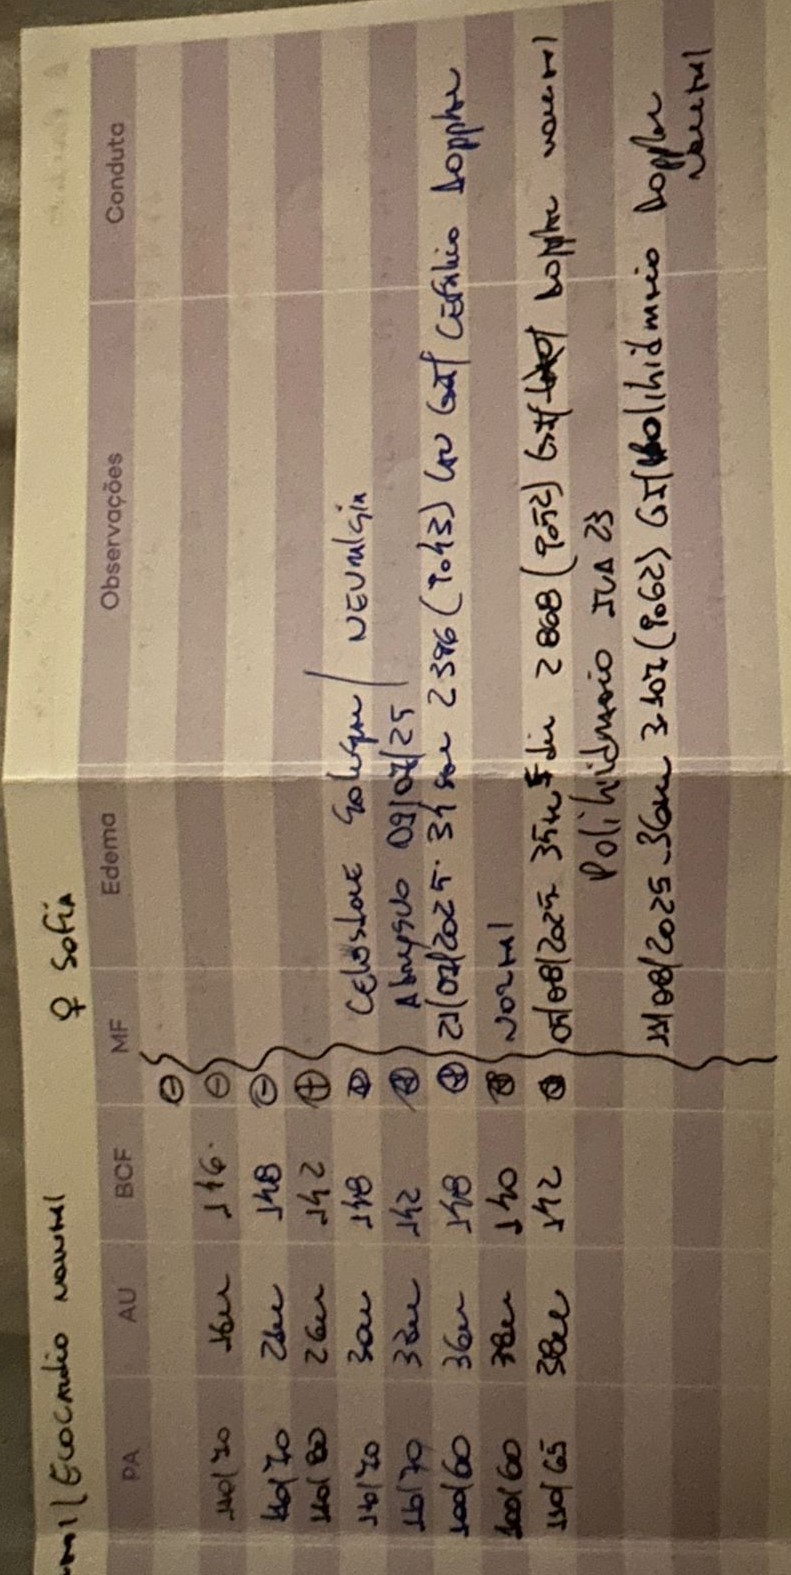 Ecocardio normal ♀ Sofia
PA AU BCF MF Edema Observações Conduta
⊖
110/70 16cm 146. ⊖
110/70 21cm 148 ⊖
110/80 26cm 142 ⊕
110/70 30cm 148 ⊕ CELESTONE /NEURALGIA
110/70 33cm 142 ⊕ 09/07/25
100/60 36cm 148 ⊕ 21/07/2025 2396 (P.43) CEFÁLICO DOPPLER
100/60 38cm 140 ⊕ NORMAL
110/65 38cm 142 ⊕ 05/08/2025 35 5 2868 (P.52) DOPPLER NORMAL
Polihidrâmnio ILA 23
11/08/2025 36 3107 (P.62) Polihidrâmnio Doppler
Normal